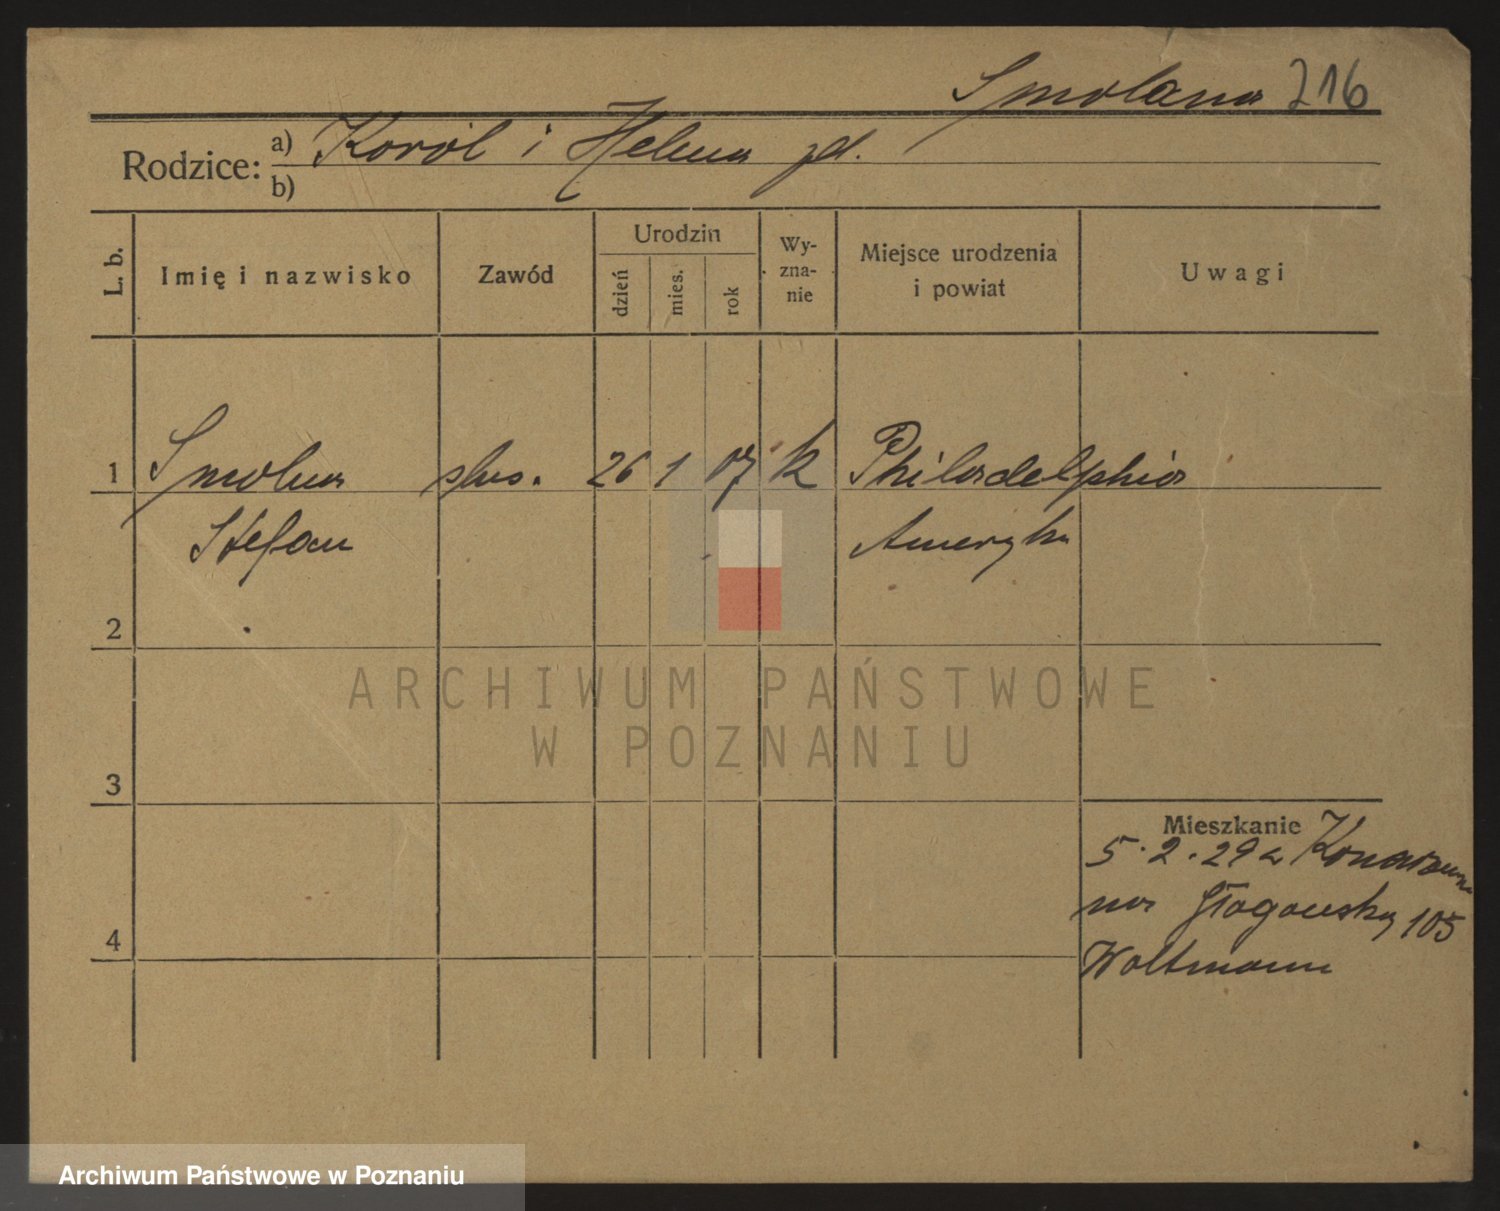 Smolana 216
Rodzice: a) Karól i Helena zd.
b)
L. b. Imię i nazwisko Zawód Urodzin dzień mies. rok Wy-zna-nie Miejsce urodzenia i powiat Uwagi
1 Smolana ślus. 26 1 07 k Philadelphia
Stefan Ameryka
2
3
Mieszkanie
5.2.29 z
na Głogowska 105
4
Woltmann
ARCHIWUM PAŃSTWOWE
W POZNANIU
Archiwum Państwowe w Poznaniu